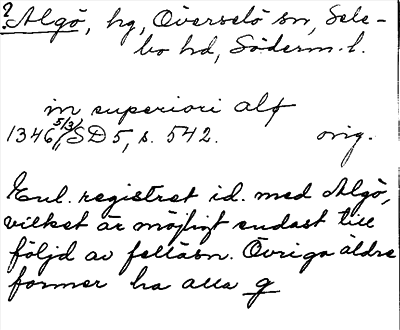 ? Algö, hg, Överselö sn, Sele-
bo hd, Söderm. l.
in superiori alø
1346 5/3, SD 5, s. 542. orig.
Enl. registret id. med Algö,
vilket är möjligt endast till
följd av felläsn. Övriga äldre
former ha alla g